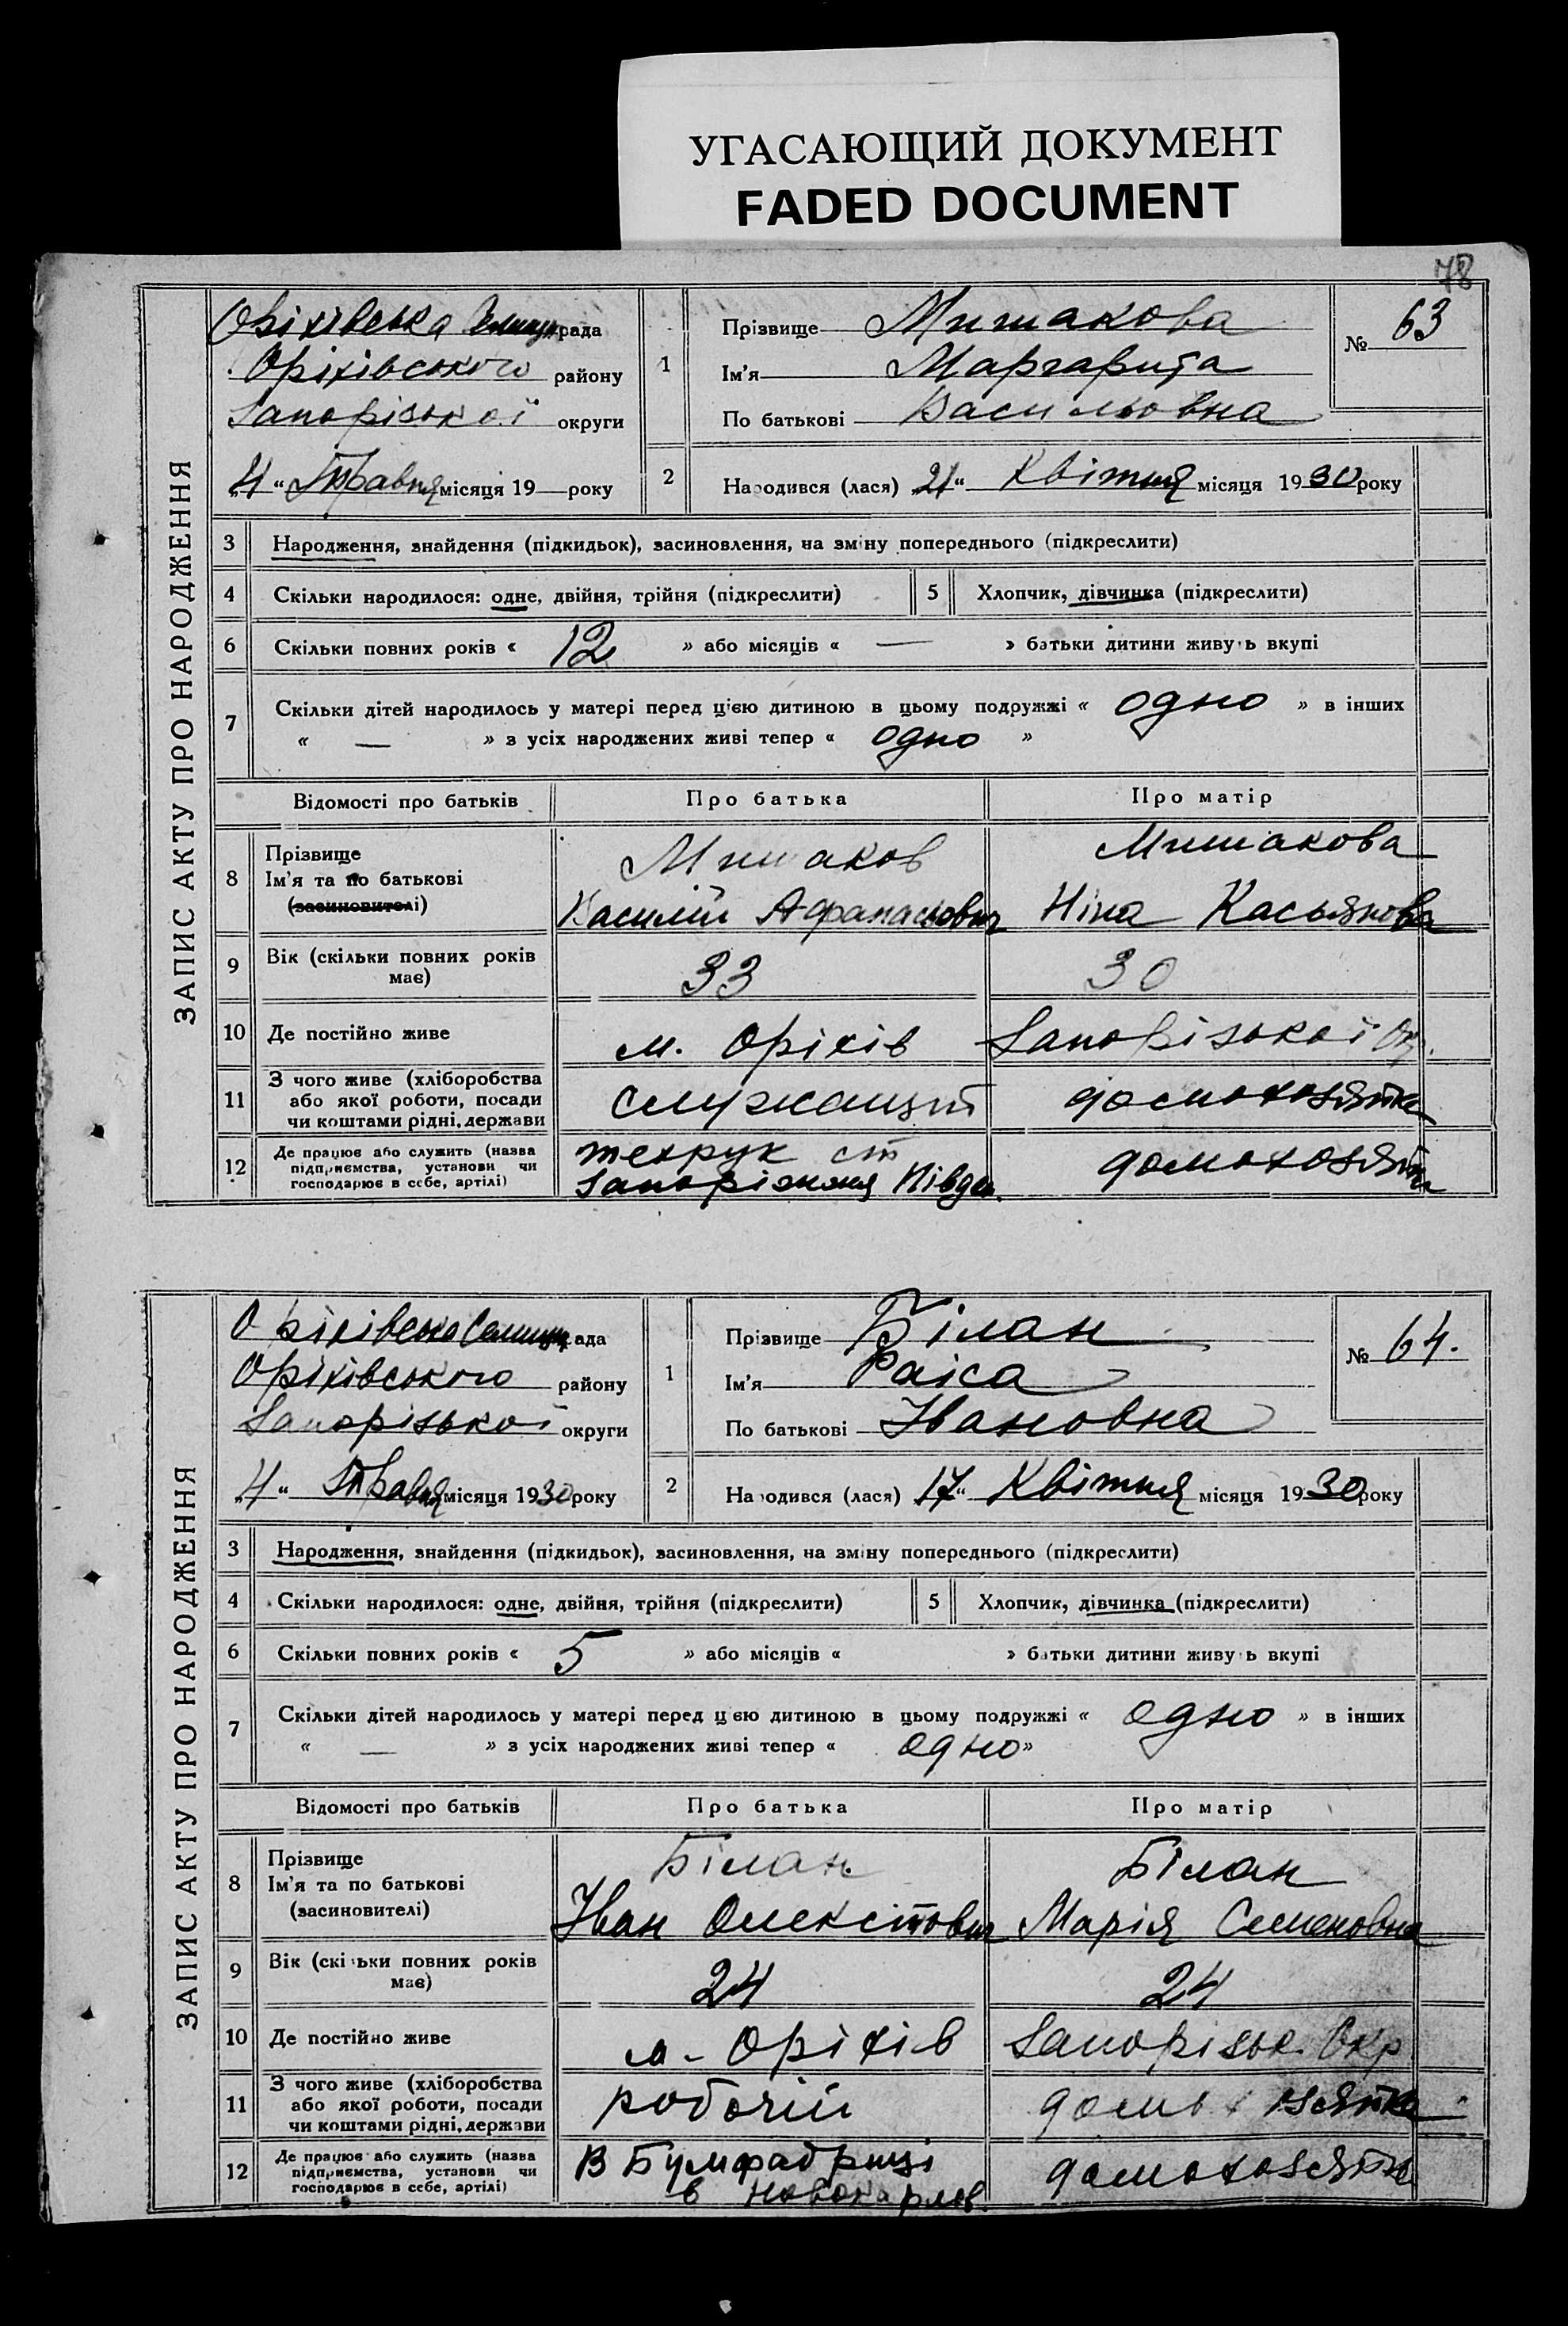 УГАСАЮЩИЙ ДОКУМЕНТ
FADED DOCUMENT
78
ЗАПИС АКТУ ПРО НАРОДЖЕННЯ
Оріхівська рада
Оріхівського району
Запорізької округи
„4“ Травня місяця 19 — року
1
Прізвище Мишакова
Ім'я Маргарита
По батькові Васильовна
№ 63
2
Народився (лася) 21“ Квітня місяця 1930 року
3 Народження, знайдення (підкидьок), засиновлення, на зміну попереднього (підкреслити)
4 Скільки народилося: одне, двійня, трійня (підкреслити) 5 Хлопчик, дівчинка (підкреслити)
6 Скільки повних років « 12 » або місяців « — » батьки дитини живуть вкупі
7 Скільки дітей народилось у матері перед цією дитиною в цьому подружжі « одно » в інших
« — » з усіх народжених живі тепер « одно »
Відомості про батьків Про батька Про матір
8 Прізвище
Ім'я та по батькові
(засиновителі)
Мишаков
Василій Афанасьович
Мишакова
Ніна Касьянова
9 Вік (скільки повних років має) 33 30
10 Де постійно живе м. Оріхів Запорізької Окр.
11 З чого живе (хліборобства
або якої роботи, посади
чи коштами рідні, держави
служащит домохозяйка
12 Де працює або служить (назва
підприємства, установи чи
господарює в себе, артілі)
техрук ст
Запоріжжя Півден.
домохозяйка
ЗАПИС АКТУ ПРО НАРОДЖЕННЯ
Оріхівська Селищ рада
Оріхівського району
Запорізької округи
„4“ Травня місяця 1930 року
1
Прізвище Білан
Ім'я Раіса
По батькові Івановна
№ 64.
2
Народився (лася) 17“ Квітня місяця 1930 року
3 Народження, знайдення (підкидьок), засиновлення, на зміну попереднього (підкреслити)
4 Скільки народилося: одне, двійня, трійня (підкреслити) 5 Хлопчик, дівчинка (підкреслити)
6 Скільки повних років « 5 » або місяців « » батьки дитини живуть вкупі
7 Скільки дітей народилось у матері перед цією дитиною в цьому подружжі « одно » в інших
« — » з усіх народжених живі тепер « одно »
Відомості про батьків Про батька Про матір
8 Прізвище
Ім'я та по батькові
(засиновителі)
Білан
Іван
Білан
Марія Семеновна
9 Вік (скільки повних років має) 24 24
10 Де постійно живе м. Оріхів Запорізьк. Окр
11 З чого живе (хліборобства
або якої роботи, посади
чи коштами рідні, держави
робочій домохозяйка
12 Де працює або служить (назва
підприємства, установи чи
господарює в себе, артілі)
В Бумфабриці
в Новокарлов.
домохозяйка